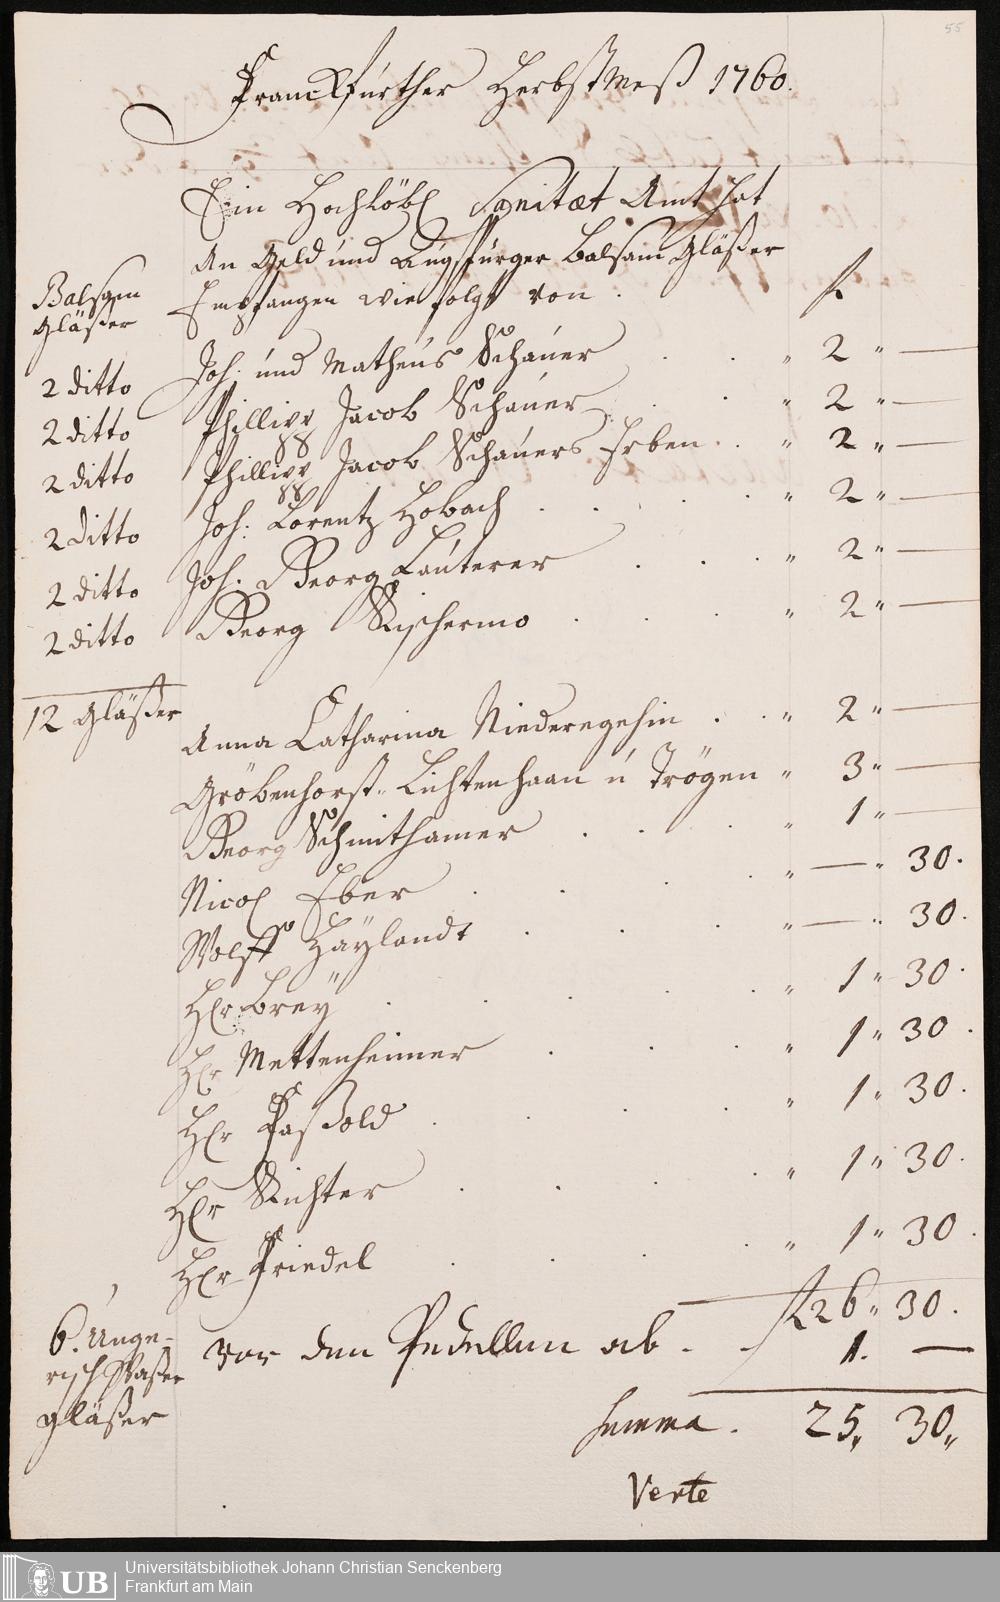 55
Franckfürther HerbstMeß 1760.
Ein Hochlöbl Sanitæt Amt hat
An Geld und Augspürger Balsam Gläßer
Empfangen wie folgt von . f.
Balsam
Gläßer
2 ditto Joh: und Matheus Schauer . . „ 2 „ —
2 ditto Phillipp Jacob Schauer . . „ 2 „ —
2 ditto Phillipp Jacob Schauers Erben . . „ 2 „ —
2 ditto Joh: Lorentz Hobach . . . . „ 2 „ —
2 ditto Joh. Georg Lauterer . . . „ 2 „ —
2 ditto Georg Rischermo . . . „ 2 „ —
12 Gläßer
Anna Catharina Niederegehin . . „ 2 „ —
Gröbenhorst. Lichtenhaan u Trögen „ 3 „ —
Georg Schmithamer . . . „ 1 „ —
Nicol Eber . . . „ — „ 30.
Wolff Haylandt . . . „ — „ 30.
Hlr Brey . . . . „ 1 „ 30.
Hlr Mettenheimer . . . „ 1 „ 30.
Hlr Paßold . . . . „ 1 „ 30.
Hlr Richter . . . . „ 1 „ 30.
Hlr Friedel . . . . „ 1 „ 30.
f 26 „ 30.
6. Unge-
risch Waßer
gläßer
vor den Pedellen ab . — 1. —
Summa . 25 „ 30 „
Verte
UB
Universitätsbibliothek Johann Christian Senckenberg
Frankfurt am Main